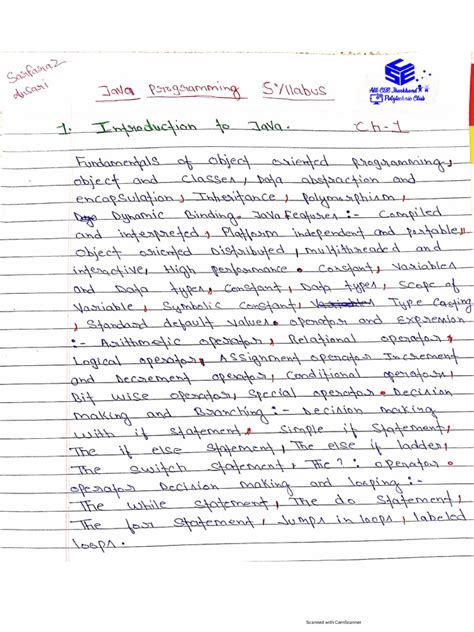 Sarfaraz
Ansari
All CSE Jharkhand
Polytechnic Club
Java Programming Syllabus
1. Introduction to Java. Ch-1
Fundamentals of object oriented programming,
object and classes, Data abstraction and
encapsulation, Inheritance, polymorphism,
Dynamic Binding. Java features :- Compiled
and interpreted, Platform independent and portable,
Object oriented Distributed, multithreaded and
interactive, High performance. Constant, Variables
and Data types, Constant, Data types, Scope of
Variable, Symbolic Constant, Type Casting
, Standard default values. operator and Expression
:- Arithmetic operator, Relational operator,
Logical operator, Assignment operator Increment
and Decrement operator, Conditional operator,
Bit wise operator, Special operator. Decision
making and Branching :- Decision making
with if statement. simple if statement,
The if else statement, The else if ladder,
The switch statement, The ? : operator.
operator Decision making and looping :-
The while statement, The do statement,
The for statement, Jumps in loops, labeled
loops.
Scanned with CamScanner